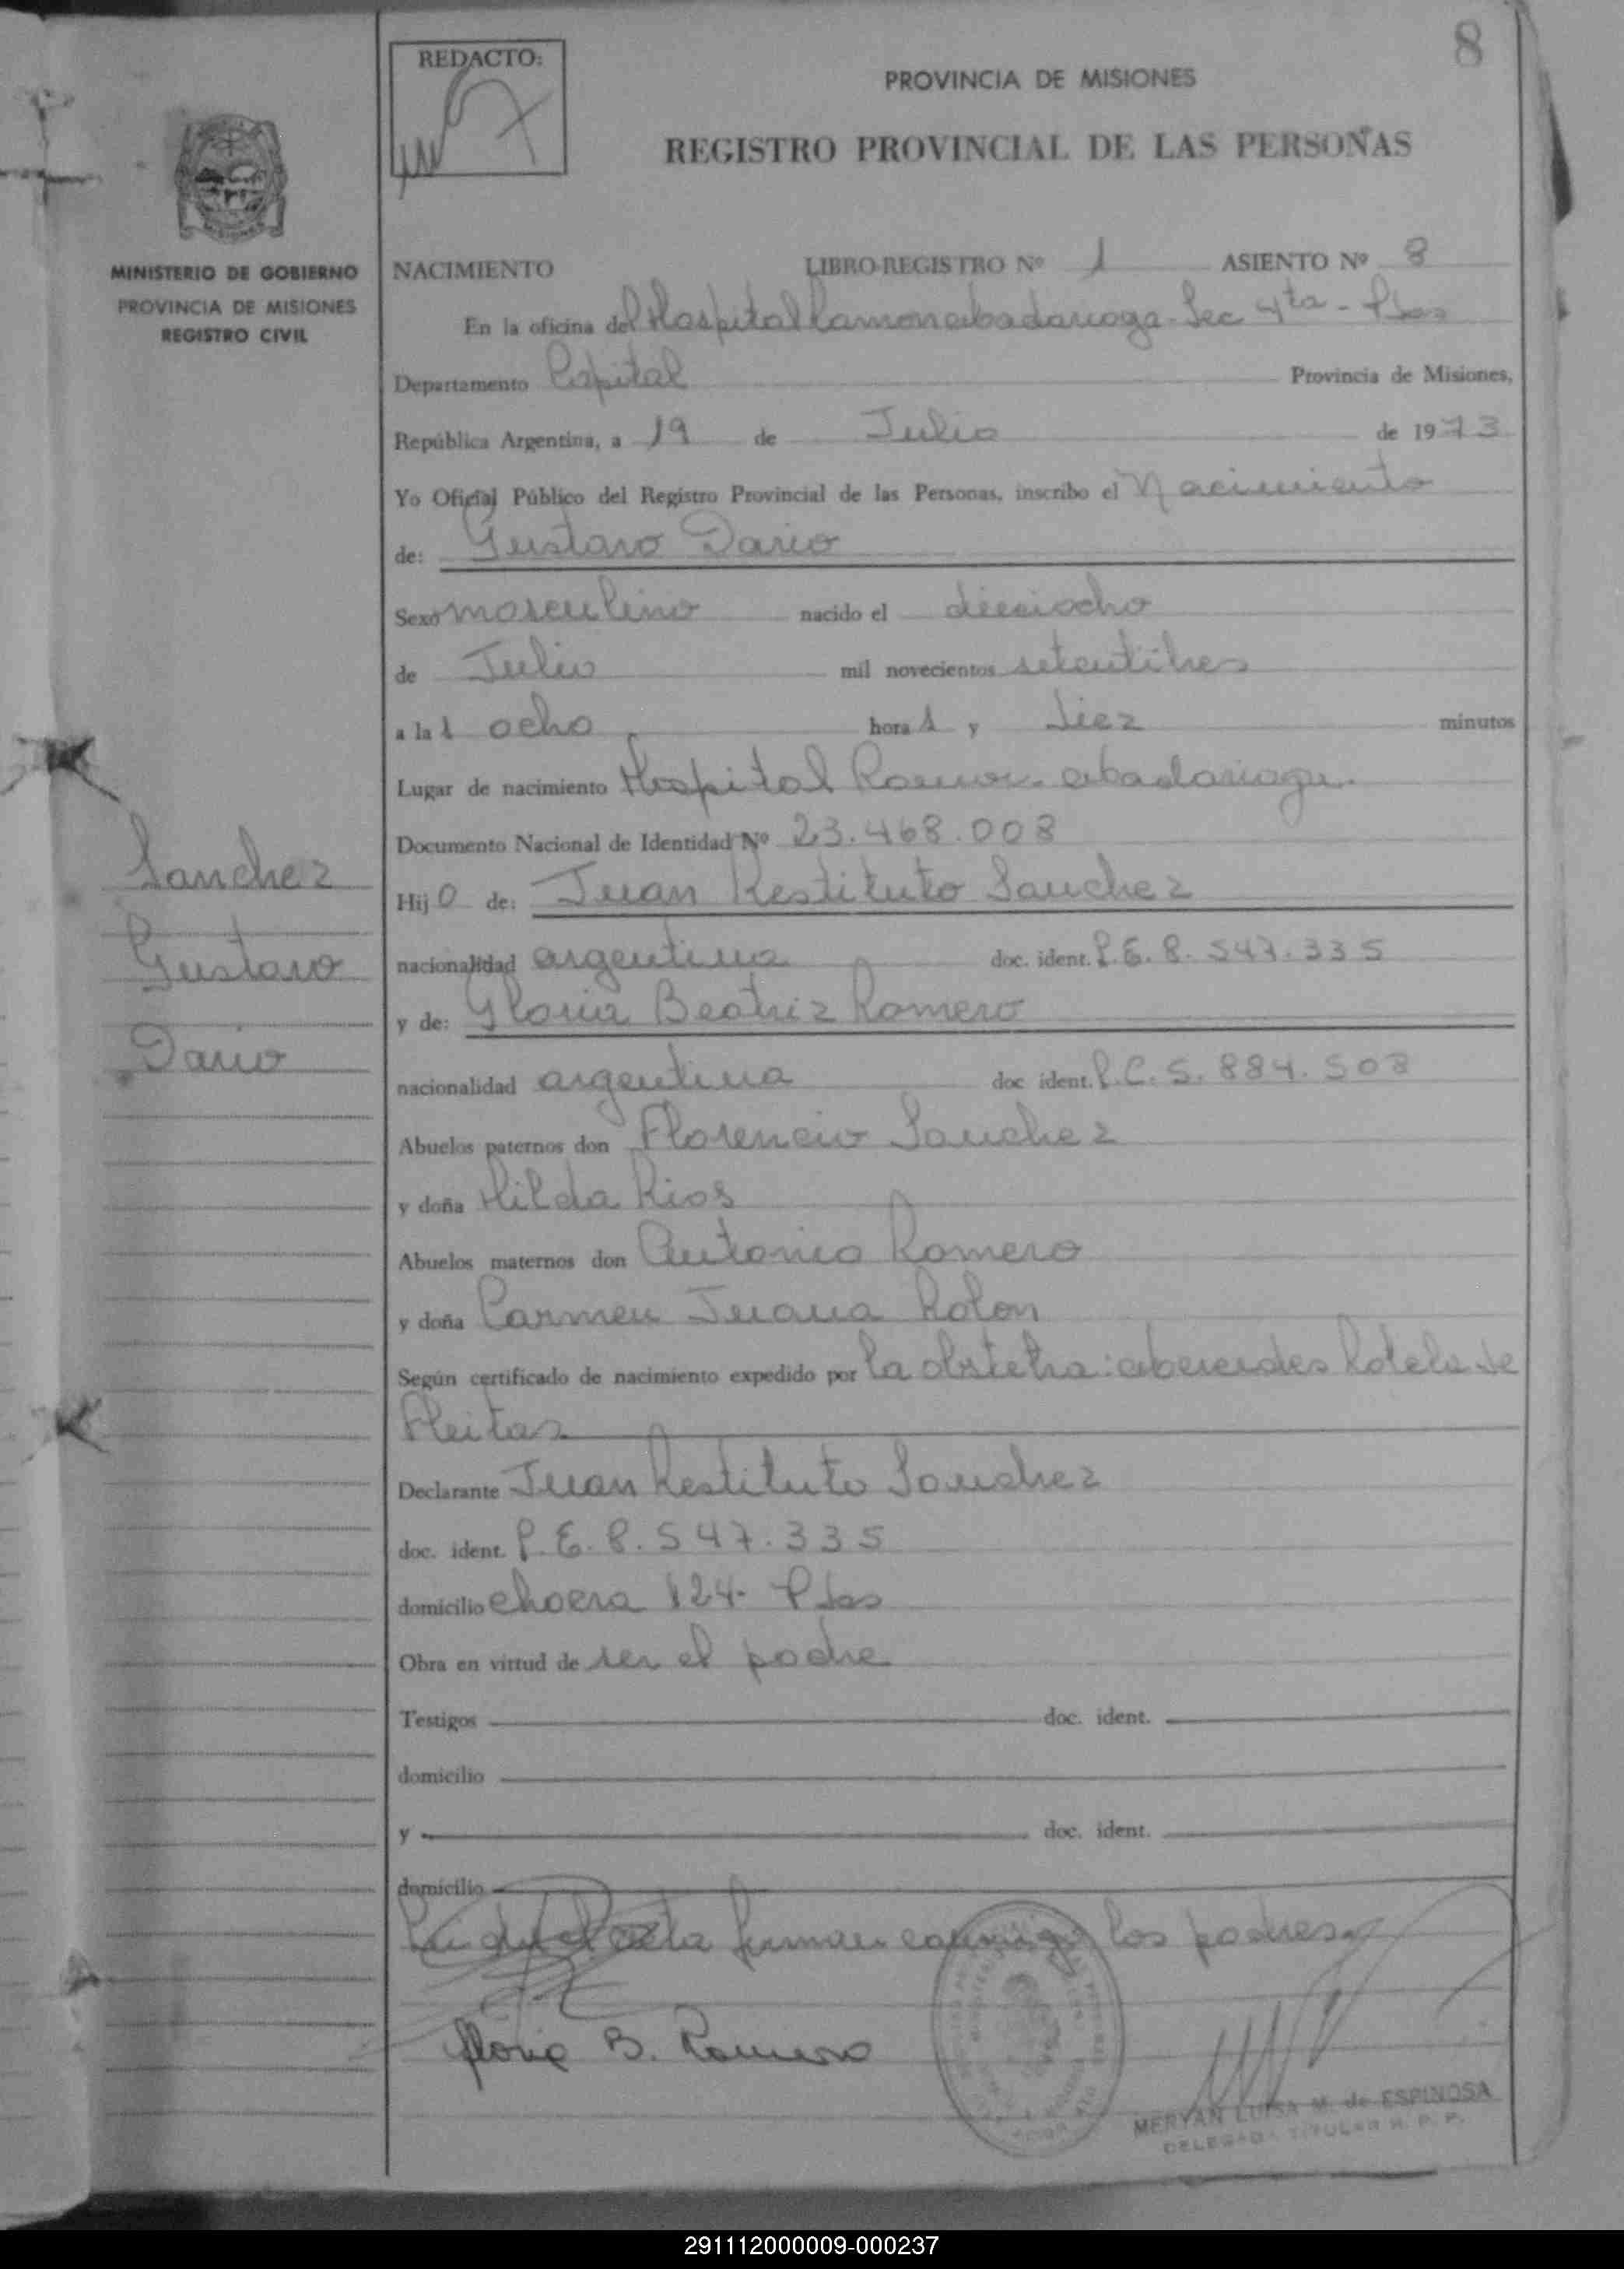 8
REDACTO:
PROVINCIA DE MISIONES
REGISTRO PROVINCIAL DE LAS PERSONAS
MINISTERIO DE GOBIERNO
PROVINCIA DE MISIONES
REGISTRO CIVIL
NACIMIENTO LIBRO-REGISTRO Nº 1 ASIENTO Nº 8
En la oficina del Hospital Ramon abadariaga - Sec 4ta - Psas
Departamento Capital Provincia de Misiones,
República Argentina, a 19 de Julio de 1973
Yo Oficial Público del Registro Provincial de las Personas, inscribo el Nacimiento
de: Gustavo Dario
Sexo masculino nacido el dieciocho
de Julio mil novecientos setentitres
a las ocho horas y diez minutos
Lugar de nacimiento Hospital Ramon abadariaga.
Documento Nacional de Identidad Nº 23.468.008
Sanchez
Gustavo
Dario
Hijo de: Juan Restituto Sanchez
nacionalidad argentina doc. ident. L.E. 8.547.335
y de: Gloria Beatriz Romero
nacionalidad argentina doc ident. L.C. 5.884.508
Abuelos paternos don Florencio Sanchez
y doña Hilda Rios
Abuelos maternos don Antonio Romero
y doña Carmen Juana Rolon
Según certificado de nacimiento expedido por la obstetra: Rotela de
Fleitas
Declarante Juan Restituto Sanchez
doc. ident. L.E. 8.547.335
domicilio chacra 124 - Psas
Obra en virtud de ser el padre
Testigos doc. ident.
domicilio
y doc. ident.
domicilio
acta firman conmigo los padres
Gloria B. Romero
MERYAN LUISA M. de ESPINOSA
DELEGADA TITULAR R. P. P.
291112000009-000237